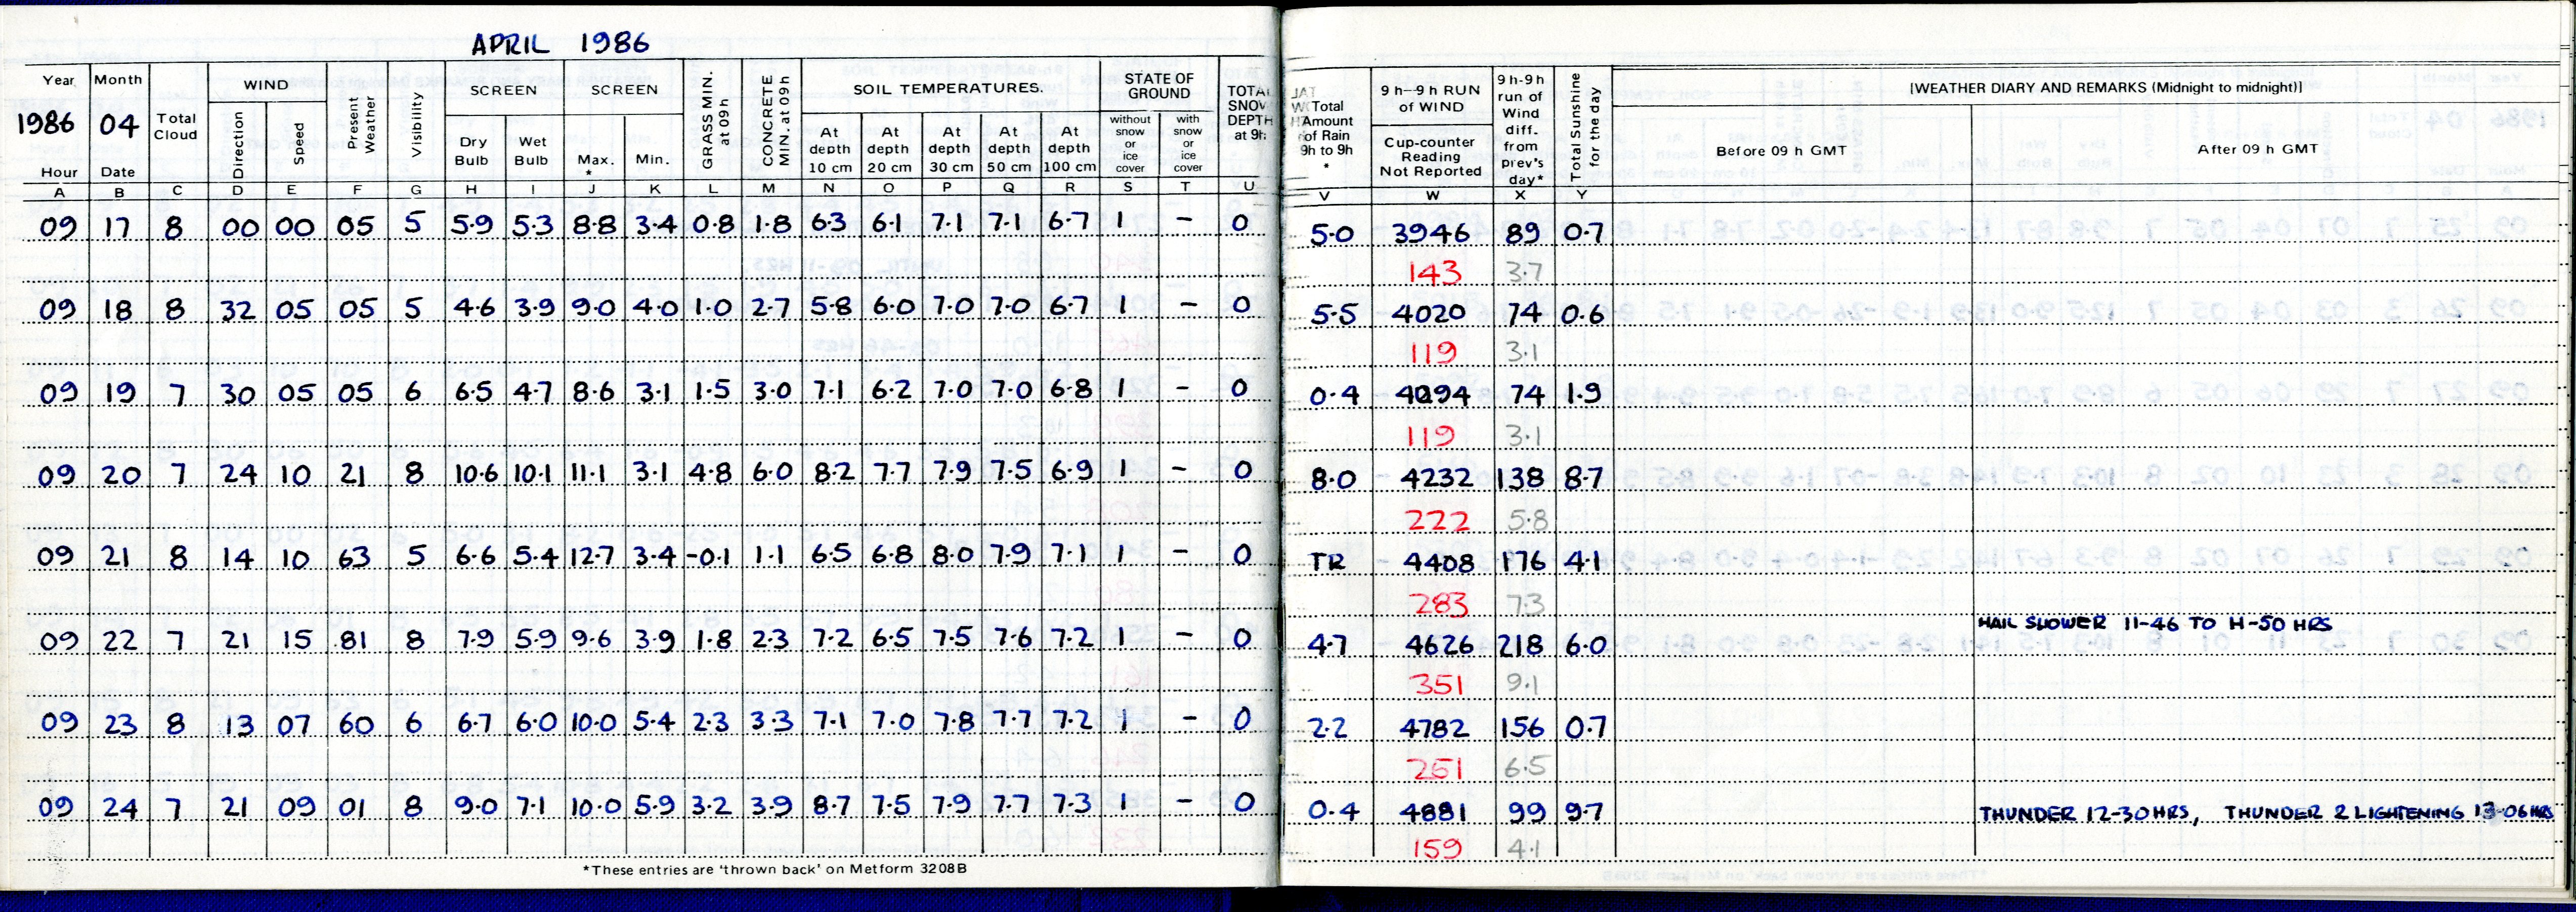 APRIL 1986
Year Month Total Cloud WIND Present Weather Visibility SCREEN SCREEN GRASS MIN. at 09h CONCRETE MIN. at 09h SOIL TEMPERATURES. STATE OF GROUND TOTAL SNOW DEPTH at 9h
1986 04 Direction Speed Dry Bulb Wet Bulb Max. * Min. At depth 10 cm At depth 20 cm At depth 30 cm At depth 50 cm At depth 100 cm without snow or ice cover with snow or ice cover
Hour Date
Total Amount of Rain 9h to 9h * 9h–9h RUN of WIND Cup-counter Reading Not Reported 9h-9h run of Wind diff. from prev's day* Total Sunshine for the day [WEATHER DIARY AND REMARKS (Midnight to midnight)]
Before 09 h GMT After 09 h GMT
A B C D E F G H I J K L M N O P Q R S T U V W X Y
09 17 8 00 00 05 5 5.9 5.3 8.8 3.4 0.8 1.8 6.3 6.1 7.1 7.1 6.7 1 – 0 5.0 3946 89 0.7
143 3.7
09 18 8 32 05 05 5 4.6 3.9 9.0 4.0 1.0 2.7 5.8 6.0 7.0 7.0 6.7 1 – 0 5.5 4020 74 0.6
119 3.1
09 19 7 30 05 05 6 6.5 4.7 8.6 3.1 1.5 3.0 7.1 6.2 7.0 7.0 6.8 1 – 0 0.4 4094 74 1.9
119 3.1
09 20 7 24 10 21 8 10.6 10.1 11.1 3.1 4.8 6.0 8.2 7.7 7.9 7.5 6.9 1 – 0 8.0 4232 138 8.7
222 5.8
09 21 8 14 10 63 5 6.6 5.4 12.7 3.4 -0.1 1.1 6.5 6.8 8.0 7.9 7.1 1 – 0 TR 4408 176 4.1
283 7.3
HAIL SHOWER 11-46 TO 11-50 HRS
09 22 7 21 15 81 8 7.9 5.9 9.6 3.9 1.8 2.3 7.2 6.5 7.5 7.6 7.2 1 – 0 4.7 4626 218 6.0
351 9.1
09 23 8 13 07 60 6 6.7 6.0 10.0 5.4 2.3 3.3 7.1 7.0 7.8 7.7 7.2 1 – 0 2.2 4782 156 0.7
251 6.5
09 24 7 21 09 01 8 9.0 7.1 10.0 5.9 3.2 3.9 8.7 7.5 7.9 7.7 7.3 1 – 0 0.4 4881 99 9.7 THUNDER 12-30 HRS, THUNDER & LIGHTENING 13-06 HRS
159 4.1
*These entries are 'thrown back' on Metform 3208B